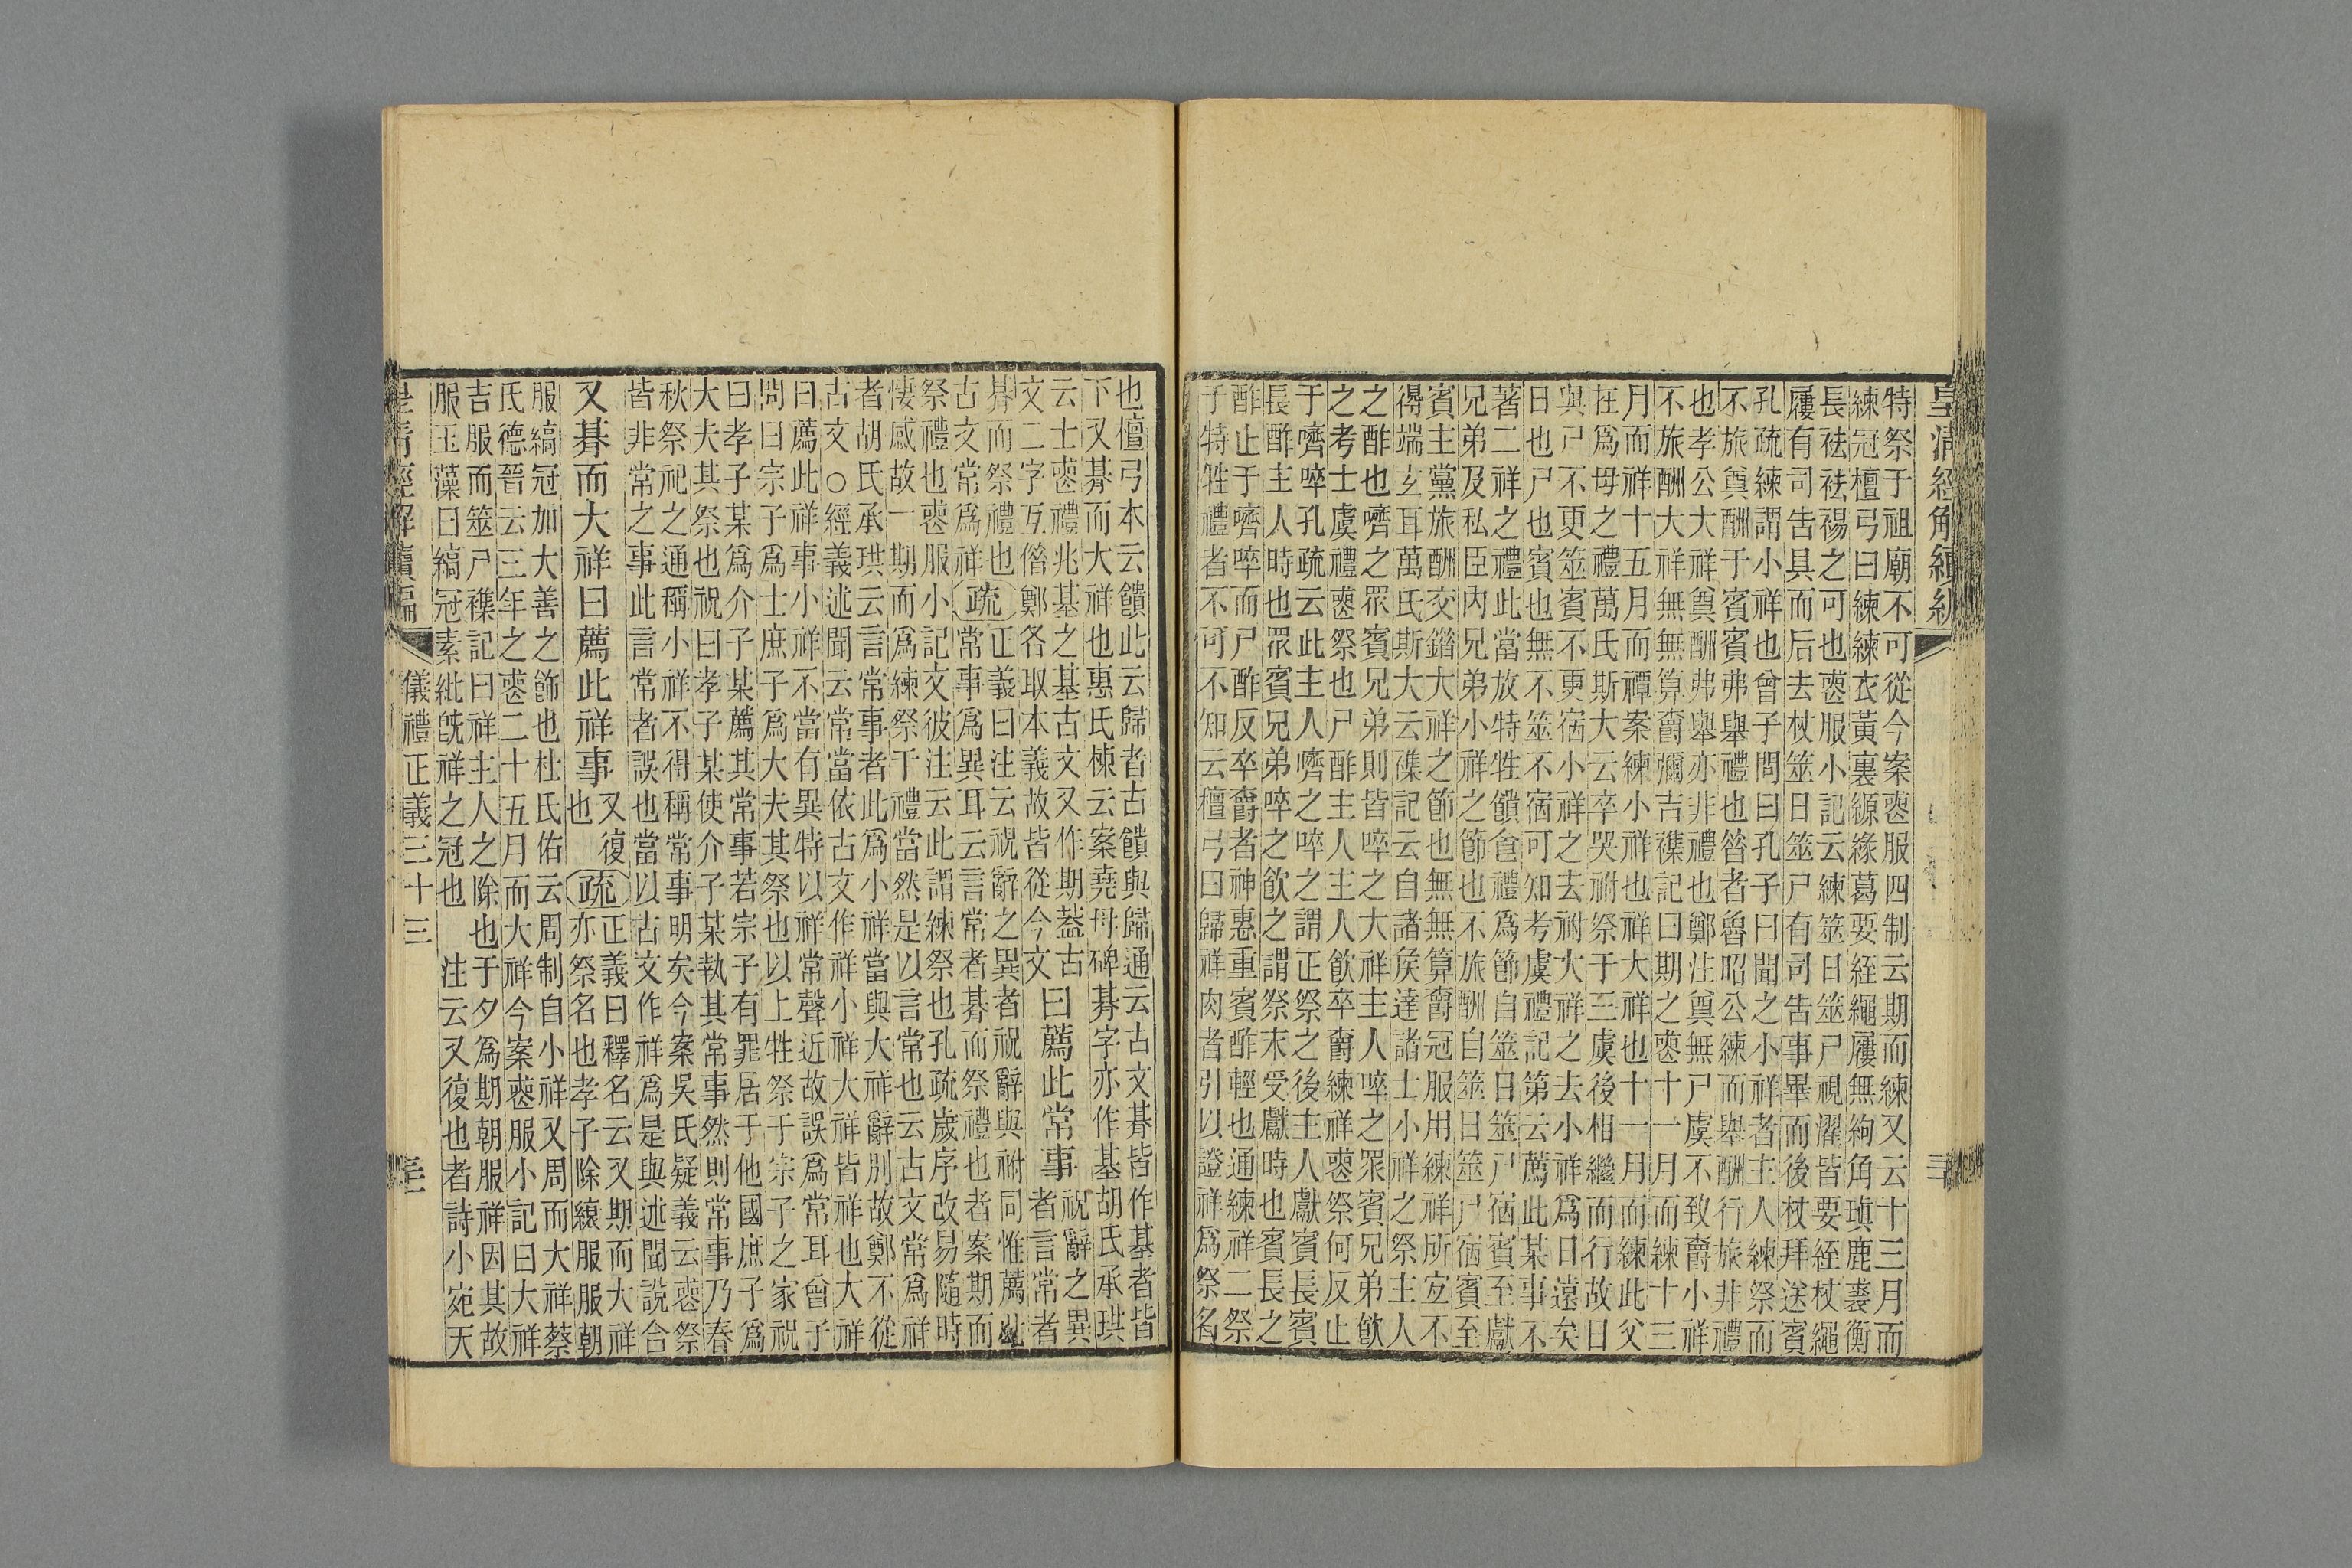 皇清經解續編
特祭于祖廟不可從今案喪服四制云期而練又云十三月而
練冠檀弓曰練練衣黃裏縓緣葛要絰繩屨無絇角瑱鹿裘衡
長袪袪裼之可也喪服小記云練筮日筮尸視濯皆要絰杖繩
屨有司告具而后去杖筮日筮尸有司告事畢而後杖拜送賓
孔疏練謂小祥也曾子問曰孔子曰聞之小祥者主人練祭而
不旅奠酬于賓賓弗舉禮也昝者魯昭公練而舉酬行旅非禮
也孝公大祥奠酬弗舉亦非禮也鄭注奠無尸虞不致爵小祥
不旅酬大祥無無算爵彌吉襍記曰期之喪十一月而練十三
月而祥十五月而禫案練小祥也祥大祥也十一月而練此父
在爲母之禮萬氏斯大云卒哭祔祭于三虞後相繼而行故日
與尸不更筮賓不更宿小祥之去祔大祥之去小祥爲日遠矣
日也尸也賓也無不筮不宿可知考虞禮記第云薦此某事不
著二祥之禮此當放特牲饋食禮爲節自筮日筮尸宿賓至獻
兄弟及私臣內兄弟小祥之節也不旅酬自筮日筮尸宿賓至
賓主黨旅酬交錯大祥之節也無無算爵冠服用練祥所宐不
得端玄耳萬氏斯大云襍記云自諸矦達諸士小祥之祭主人
之酢也嚌之眾賓兄弟則皆啐之大祥主人啐之眾賓兄弟飮
之考士虞禮喪祭也尸酢主人主人飮卒爵練祥喪祭何反止
于嚌啐孔疏云此主人嚌之啐之謂正祭之後主人獻賓長賓
長酢主人時也眾賓兄弟啐之飮之謂祭末受獻時也賓長之
酢止于嚌啐而尸酢反卒爵者神惠重賓酢輕也通練祥二祭
于特牲禮者不可不知云檀弓曰歸祥肉者引以證祥爲祭名
也檀弓本云饋此云歸者古饋與歸通云古文朞皆作基者皆
下又朞而大祥也惠氏棟云案堯母碑朞字亦作基胡氏承珙
云士喪禮兆基之基古文又作期葢古
文二字互偺鄭各取本義故皆從今文　曰薦此常事　祝辭之異者言常者
朞而祭禮也　正義曰注云祝辭之異者祝辭與祔同惟薦此
古文常爲祥　疏　常事爲異耳云言常者朞而祭禮也者案期而
祭禮也喪服小記文彼注云此謂練祭也孔疏歲序改易隨時
悽感故一期而爲練祭于禮當然是以言常也云古文常爲祥
者胡氏承珙云言常事者此爲小祥當與大祥辭別故鄭不從
古文○經義述聞云常當依古文作祥小祥大祥皆祥也大祥
曰薦此祥事小祥不當有異特以祥常聲近故誤爲常耳曾子
問曰宗子爲士庶子爲大夫其祭也以上牲祭于宗子之家祝
曰孝子某爲介子某薦其常事若宗子有罪居于他國庶子爲
大夫其祭也祝曰孝子某使介子某執其常事然則常事乃春
秋祭祀之通稱小祥不得稱常事明矣今案吳氏疑義云喪祭
皆非常之事此言常者誤也當以古文作祥爲是與述聞說合
又朞而大祥曰薦此祥事　又復也　疏　正義曰釋名云又期而大祥亦祭名也孝子除縗服服朝
服縞冠加大善之飾也杜氏佑云周制自小祥又周而大祥蔡
氏德晉云三年之喪二十五月而大祥今案喪服小記曰大祥
吉服而筮尸襍記曰祥主人之除也于夕爲期朝服祥因其故
服玉藻曰縞冠素紕旣祥之冠也　注云又復也者詩小宛天
皇清經解續編　儀禮正義三十三